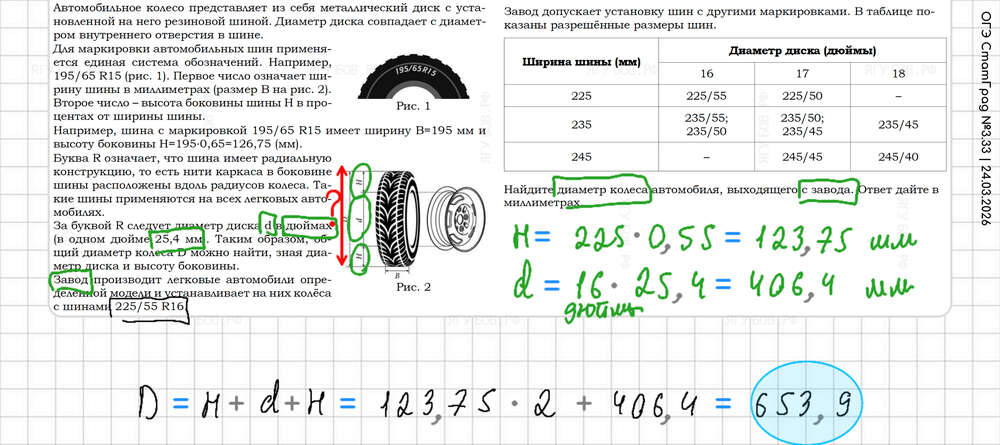 Автомобильное колесо представляет из себя металлический диск с уста-
новленной на него резиновой шиной. Диаметр диска совпадает с диамет-
ром внутреннего отверстия в шине.
Для маркировки автомобильных шин применя-
ется единая система обозначений. Например,
195/65 R15 (рис. 1). Первое число означает ши-
рину шины в миллиметрах (размер В на рис. 2).
Второе число – высота боковины шины Н в про-
центах от ширины шины.
195/65R15
Рис. 1
Например, шина с маркировкой 195/65 R15 имеет ширину В=195 мм и
высоту боковины Н=195·0,65=126,75 (мм).
Буква R означает, что шина имеет радиальную
конструкцию, то есть нити каркаса в боковине
шины расположены вдоль радиусов колеса. Та-
кие шины применяются на всех легковых авто-
мобилях.
За буквой R следует диаметр диска d в дюймах
(в одном дюйме 25,4 мм). Таким образом, об-
щий диаметр колеса D можно найти, зная диа-
метр диска и высоту боковины.
Завод производит легковые автомобили опре-
делённой модели и устанавливает на них колёса
с шинами 225/55 R16
H
H
B
Рис. 2
Завод допускает установку шин с другими маркировками. В таблице по-
казаны разрешённые размеры шин.
Ширина шины (мм) Диаметр диска (дюймы)
16 17 18
225 225/55 225/50 –
235 235/55; 235/50; 235/45
235/50 235/45
245 – 245/45 245/40
Найдите диаметр колеса автомобиля, выходящего с завода. Ответ дайте в
миллиметрах
H = 225 · 0,55 = 123,75 мм
d = 16 · 25,4 = 406,4 мм
дюймы
D = H + d + H = 123,75 · 2 + 406,4 = 653,9
ОГЭ СтатГрад №3.33 | 24.03.2026